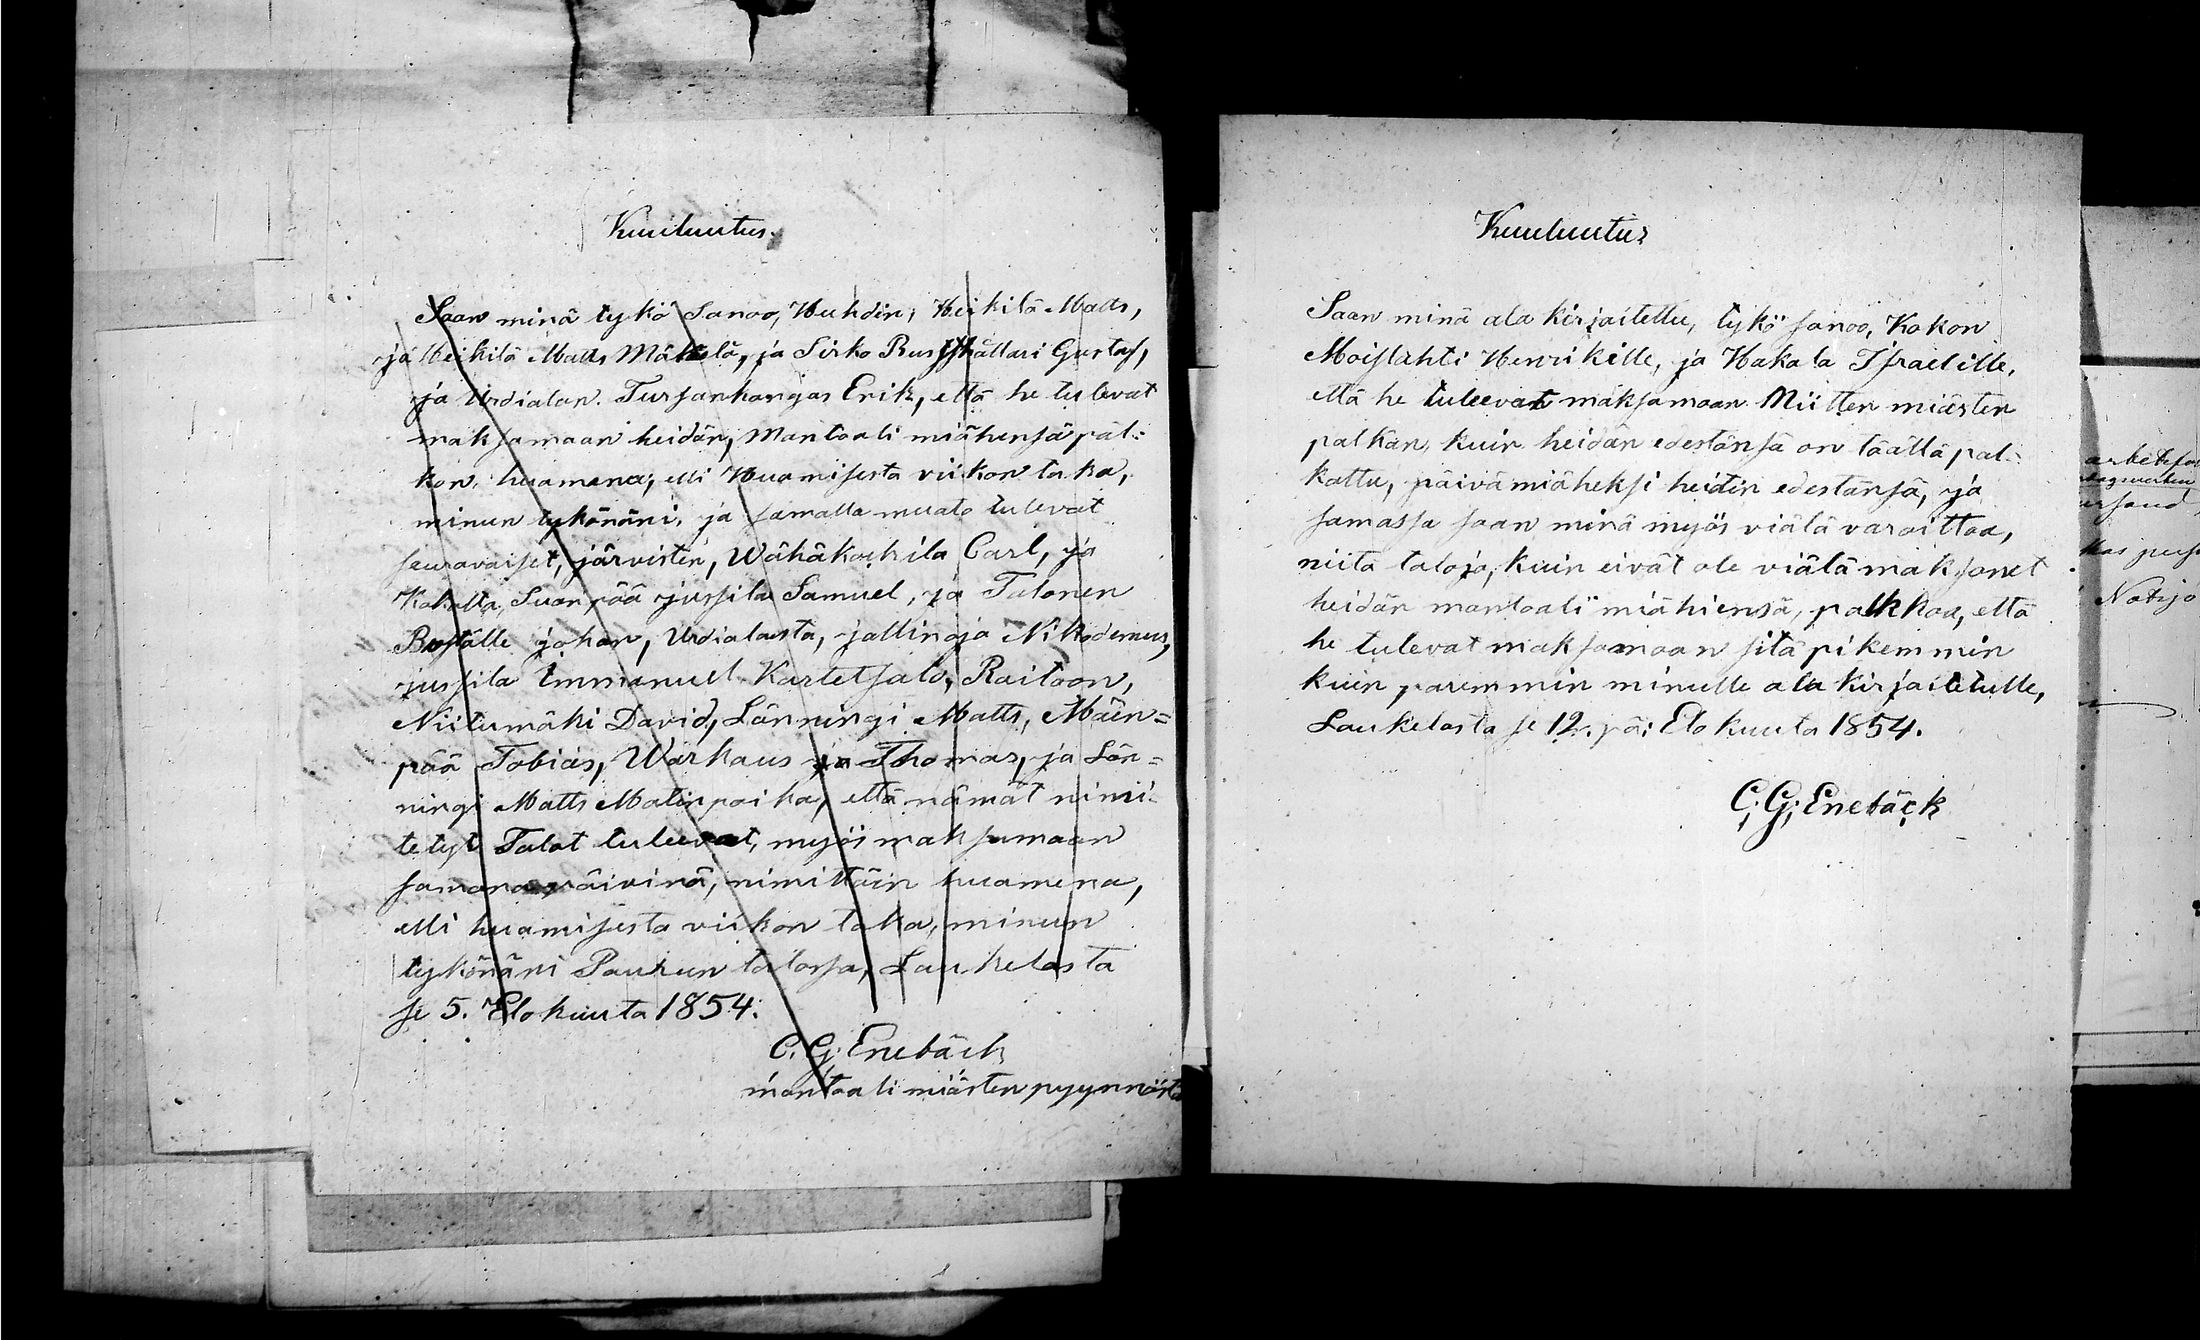 Kuuluutus.
Saan minä tykö Sanoo, Huhdin, Heikilä Matts,
ja Heikilä Matts Mäkelä, ja Sirko Gustaf,
ja Urdialan Tursankangas Erik, että he tulevat
maksamaan heidän, Mantaali miähensä pal-
kan, huamena, elli Huamisesta viikon taka,
minun tykönäni, ja samalla muato tulevat
seuravaiset, järvisten, Wähäkochila Carl, ja
Suanpää jussila Samuel, ja Talonen
johan, Urdialasta, jallinoja Nikodemus,
jussila Emmanuel Kartetsalo, Raitoon,
Niitumäki David, Länningi Matts, Mäen=
pää Tobias, Warhaus ja Thomas, ja Län=
ningi Matts Matinpaika, että nämät nimi-
tetyt Talot tuleevat, myös maksamaan
samana päivinä, nimittäin huamena,
elli huamisesta viikon taka, minun
tykönäni Paurun talossa, Laukelasta
se 5. Elokuuta 1854.
C. G. Enebäck
mantaali miästen pyynnöst
Kuuluutus
Saan minä ala kirjaitettu, tykö sanoo, Kokon
Moislahti Henrikille, ja Hakala Israelille,
että he tuleevat maksamaan Niitten miästen
palkan, kuin heidän edestänsä on täältä pal-
kattu, päivämiäheksi heitin edestänsä, ja
samassa saan minä myös viälä varoittaa,
niita taloja, kuin eivät ole viälä maksanet
heidän mantaali miähiensä, palkkaa, että
he tulevat maksamaan sitä pikemmin
kuin paremmin minulle ala kirjaitetulle,
Laukelasta se 12. pä: Elokuuta 1854.
C; G; Enebäck
Notijo